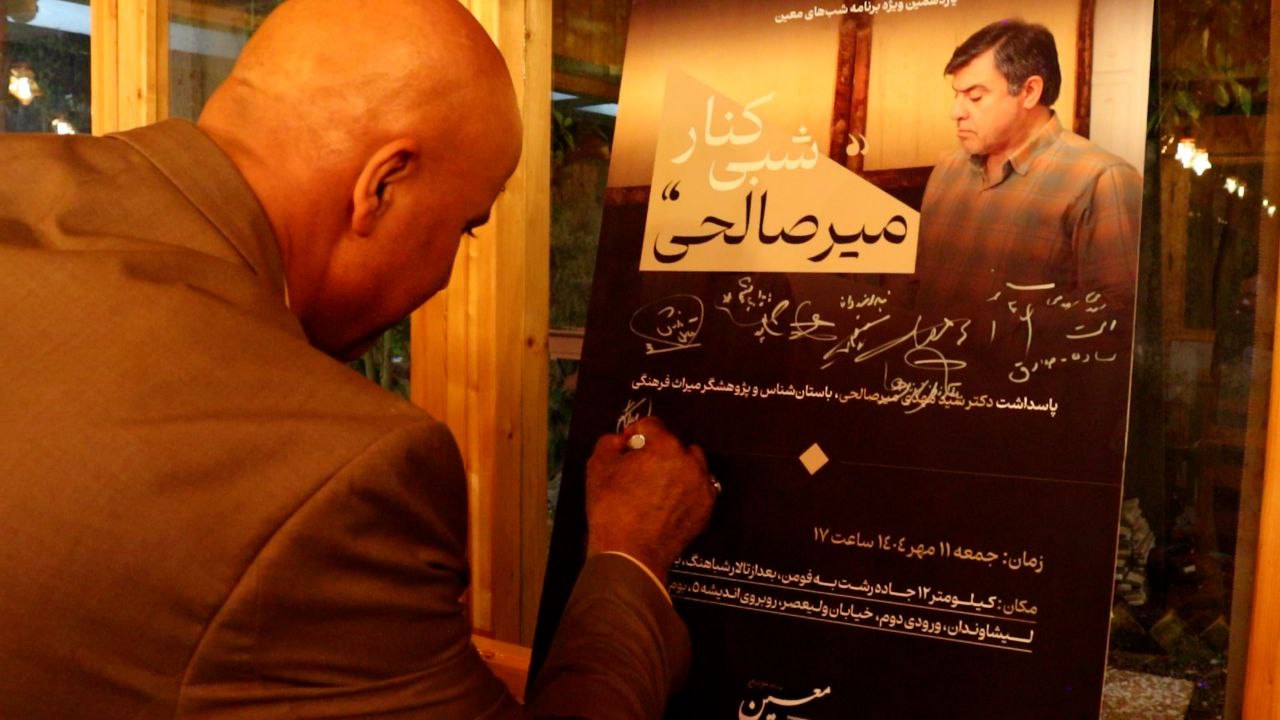 یازدهمین ویژه برنامه شب‌های معین
"شبی کنار
میرصالحی"
پاسداشت دکتر سید مهدی میرصالحی، باستان‌شناس و پژوهشگر میراث فرهنگی
زمان: جمعه ۱۱ مهر ۱۴۰۴ ساعت ۱۷
مکان: کیلومتر ۱۲ جاده رشت به فومن، بعد از تالار شباهنگ،
لیشاوندان، ورودی دوم، خیابان ولیعصر، روبروی اندیشه ۵، بوم
معین